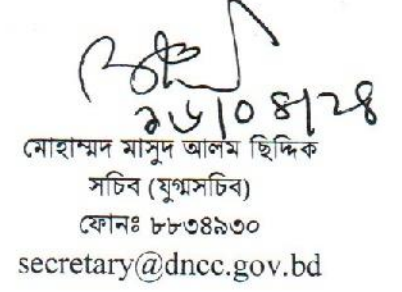 ২৬/০৪/২৪
মোহাম্মদ মাসুদ আলম ছিদ্দিক
সচিব (যুগ্মসচিব)
ফোনঃ ৮৮৩৪৯৩০
secretary@dncc.gov.bd